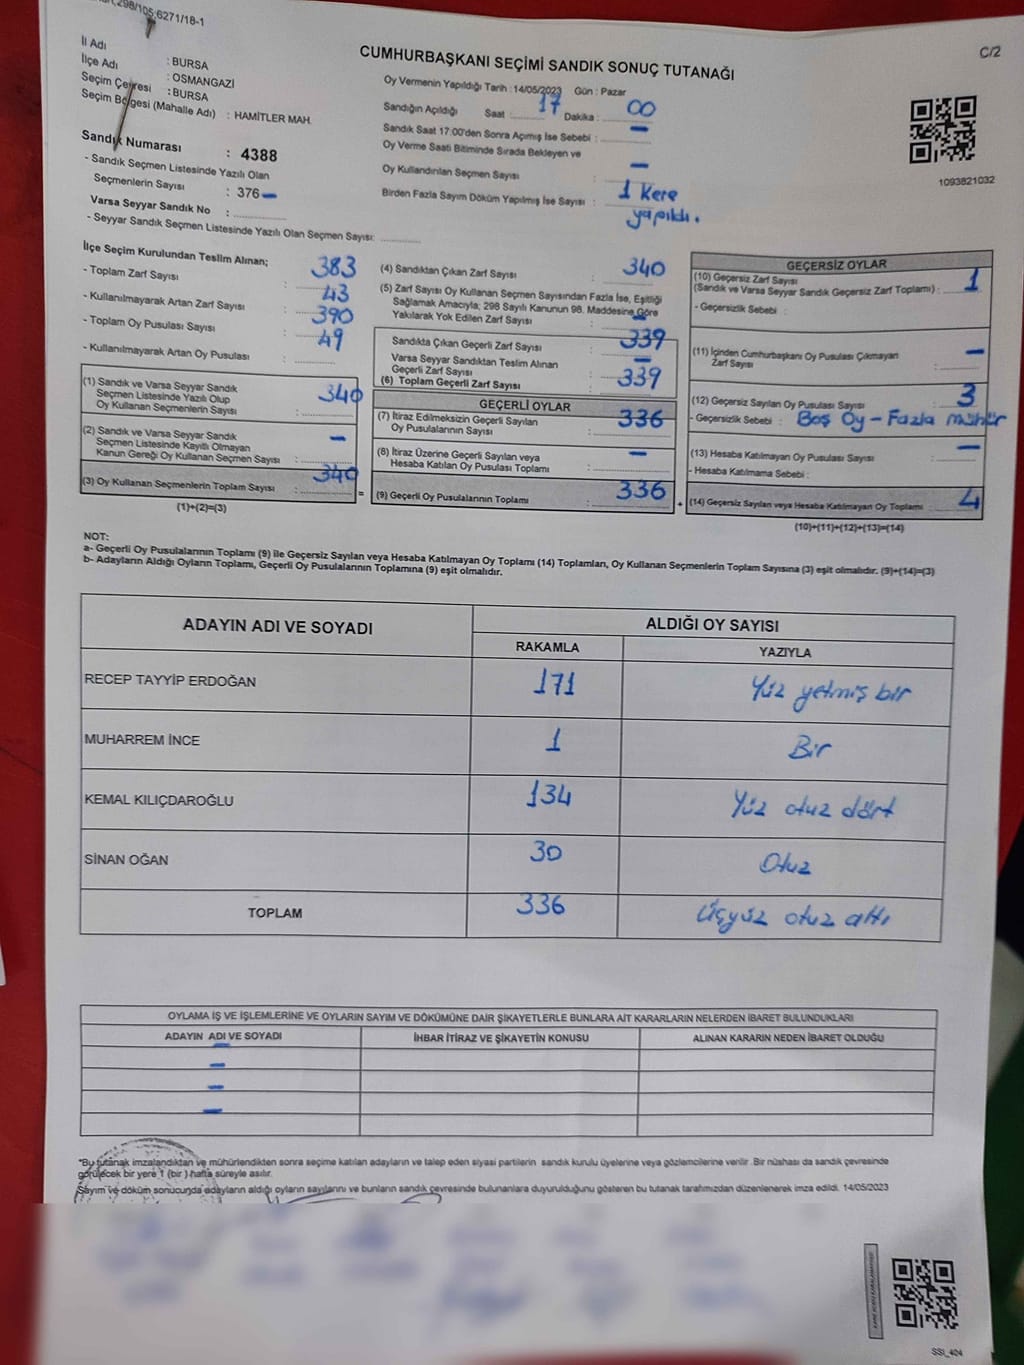 298/105;6271/18-1
C/2
CUMHURBAŞKANI SEÇİMİ SANDIK SONUÇ TUTANAĞI
İl Adı : BURSA
İlçe Adı : OSMANGAZİ
Seçim Çevresi : BURSA
Seçim Bölgesi (Mahalle Adı) : HAMİTLER MAH.
Sandık Numarası : 4388
- Sandık Seçmen Listesinde Yazılı Olan
Seçmenlerin Sayısı : 376 -
Varsa Seyyar Sandık No :
- Seyyar Sandık Seçmen Listesinde Yazılı Olan Seçmen Sayısı:
Oy Vermenin Yapıldığı Tarih : 14/05/2023 Gün : Pazar
Sandığın Açıldığı Saat : 17 Dakika : 00
Sandık Saat 17:00'den Sonra Açımış İse Sebebi : -
Oy Verme Saati Bitiminde Sırada Bekleyen ve
Oy Kullandırılan Seçmen Sayısı : -
Birden Fazla Sayım Döküm Yapılmış İse Sayısı : 1 Kere
yapıldı.
1093821032
İlçe Seçim Kurulundan Teslim Alınan;
- Toplam Zarf Sayısı : 383
- Kullanılmayarak Artan Zarf Sayısı : 43
- Toplam Oy Pusulası Sayısı : 390
- Kullanılmayarak Artan Oy Pusulası : 49
(1) Sandık ve Varsa Seyyar Sandık
Seçmen Listesinde Yazılı Olup
Oy Kullanan Seçmenlerin Sayısı : 340
(2) Sandık ve Varsa Seyyar Sandık
Seçmen Listesinde Kayıtlı Olmayan
Kanun Gereği Oy Kullanan Seçmen Sayısı : -
(3) Oy Kullanan Seçmenlerin Toplam Sayısı : 340 =
(1)+(2)=(3)
(4) Sandıktan Çıkan Zarf Sayısı : 340
(5) Zarf Sayısı Oy Kullanan Seçmen Sayısından Fazla İse, Eşitliği
Sağlamak Amacıyla; 298 Sayılı Kanunun 98. Maddesine Göre
Yakılarak Yok Edilen Zarf Sayısı : -
Sandıkta Çıkan Geçerli Zarf Sayısı : 339
Varsa Seyyar Sandıktan Teslim Alınan
Geçerli Zarf Sayısı : -
(6) Toplam Geçerli Zarf Sayısı : 339
GEÇERLİ OYLAR
(7) İtiraz Edilmeksizin Geçerli Sayılan
Oy Pusulalarının Sayısı : 336
(8) İtiraz Üzerine Geçerli Sayılan veya
Hesaba Katılan Oy Pusulası Toplamı : -
(9) Geçerli Oy Pusulalarının Toplamı : 336 +
GEÇERSİZ OYLAR
(10) Geçersiz Zarf Sayısı
(Sandık ve Varsa Seyyar Sandık Geçersiz Zarf Toplamı) : 1
- Geçersizlik Sebebi :
(11) İçinden Cumhurbaşkanı Oy Pusulası Çıkmayan
Zarf Sayısı : -
(12) Geçersiz Sayılan Oy Pusulası Sayısı : 3
- Geçersizlik Sebebi : Boş Oy - Fazla mühür
(13) Hesaba Katılmayan Oy Pusulası Sayısı : -
- Hesaba Katılmama Sebebi :
(14) Geçersiz Sayılan veya Hesaba Katılmayan Oy Toplamı : 4
(10)+(11)+(12)+(13)=(14)
NOT:
a- Geçerli Oy Pusulalarının Toplamı (9) ile Geçersiz Sayılan veya Hesaba Katılmayan Oy Toplamı (14) Toplamları, Oy Kullanan Seçmenlerin Toplam Sayısına (3) eşit olmalıdır. (9)+(14)=(3)
b- Adayların Aldığı Oyların Toplamı, Geçerli Oy Pusulalarının Toplamına (9) eşit olmalıdır.
ADAYIN ADI VE SOYADI ALDIĞI OY SAYISI
RAKAMLA YAZIYLA
RECEP TAYYİP ERDOĞAN 171 Yüz yetmiş bir
MUHARREM İNCE 1 Bir
KEMAL KILIÇDAROĞLU 134 Yüz otuz dört
SİNAN OĞAN 30 Otuz
TOPLAM 336 Üçyüz otuz altı
OYLAMA İŞ VE İŞLEMLERİNE VE OYLARIN SAYIM VE DÖKÜMÜNE DAİR ŞİKAYETLERLE BUNLARA AİT KARARLARIN NELERDEN İBARET BULUNDUKLARI
ADAYIN ADI VE SOYADI İHBAR İTİRAZ VE ŞİKAYETİN KONUSU ALINAN KARARIN NEDEN İBARET OLDUĞU
-
-
-
-
"Bu tutanak imzalandıktan ve mühürlendikten sonra seçime katılan adayların ve talep eden siyasi partilerin sandık kurulu üyelerine veya gözlemcilerine verilir. Bir nüshası da sandık çevresinde
görülecek bir yere 1 (bir ) hafta süreyle asılır.
Sayım ve döküm sonucunda adayların aldığı oyların sayılarını ve bunların sandık çevresinde bulunanlara duyurulduğunu gösteren bu tutanak tarafımızdan düzenlenerek imza edildi. 14/05/2023
SSI_404